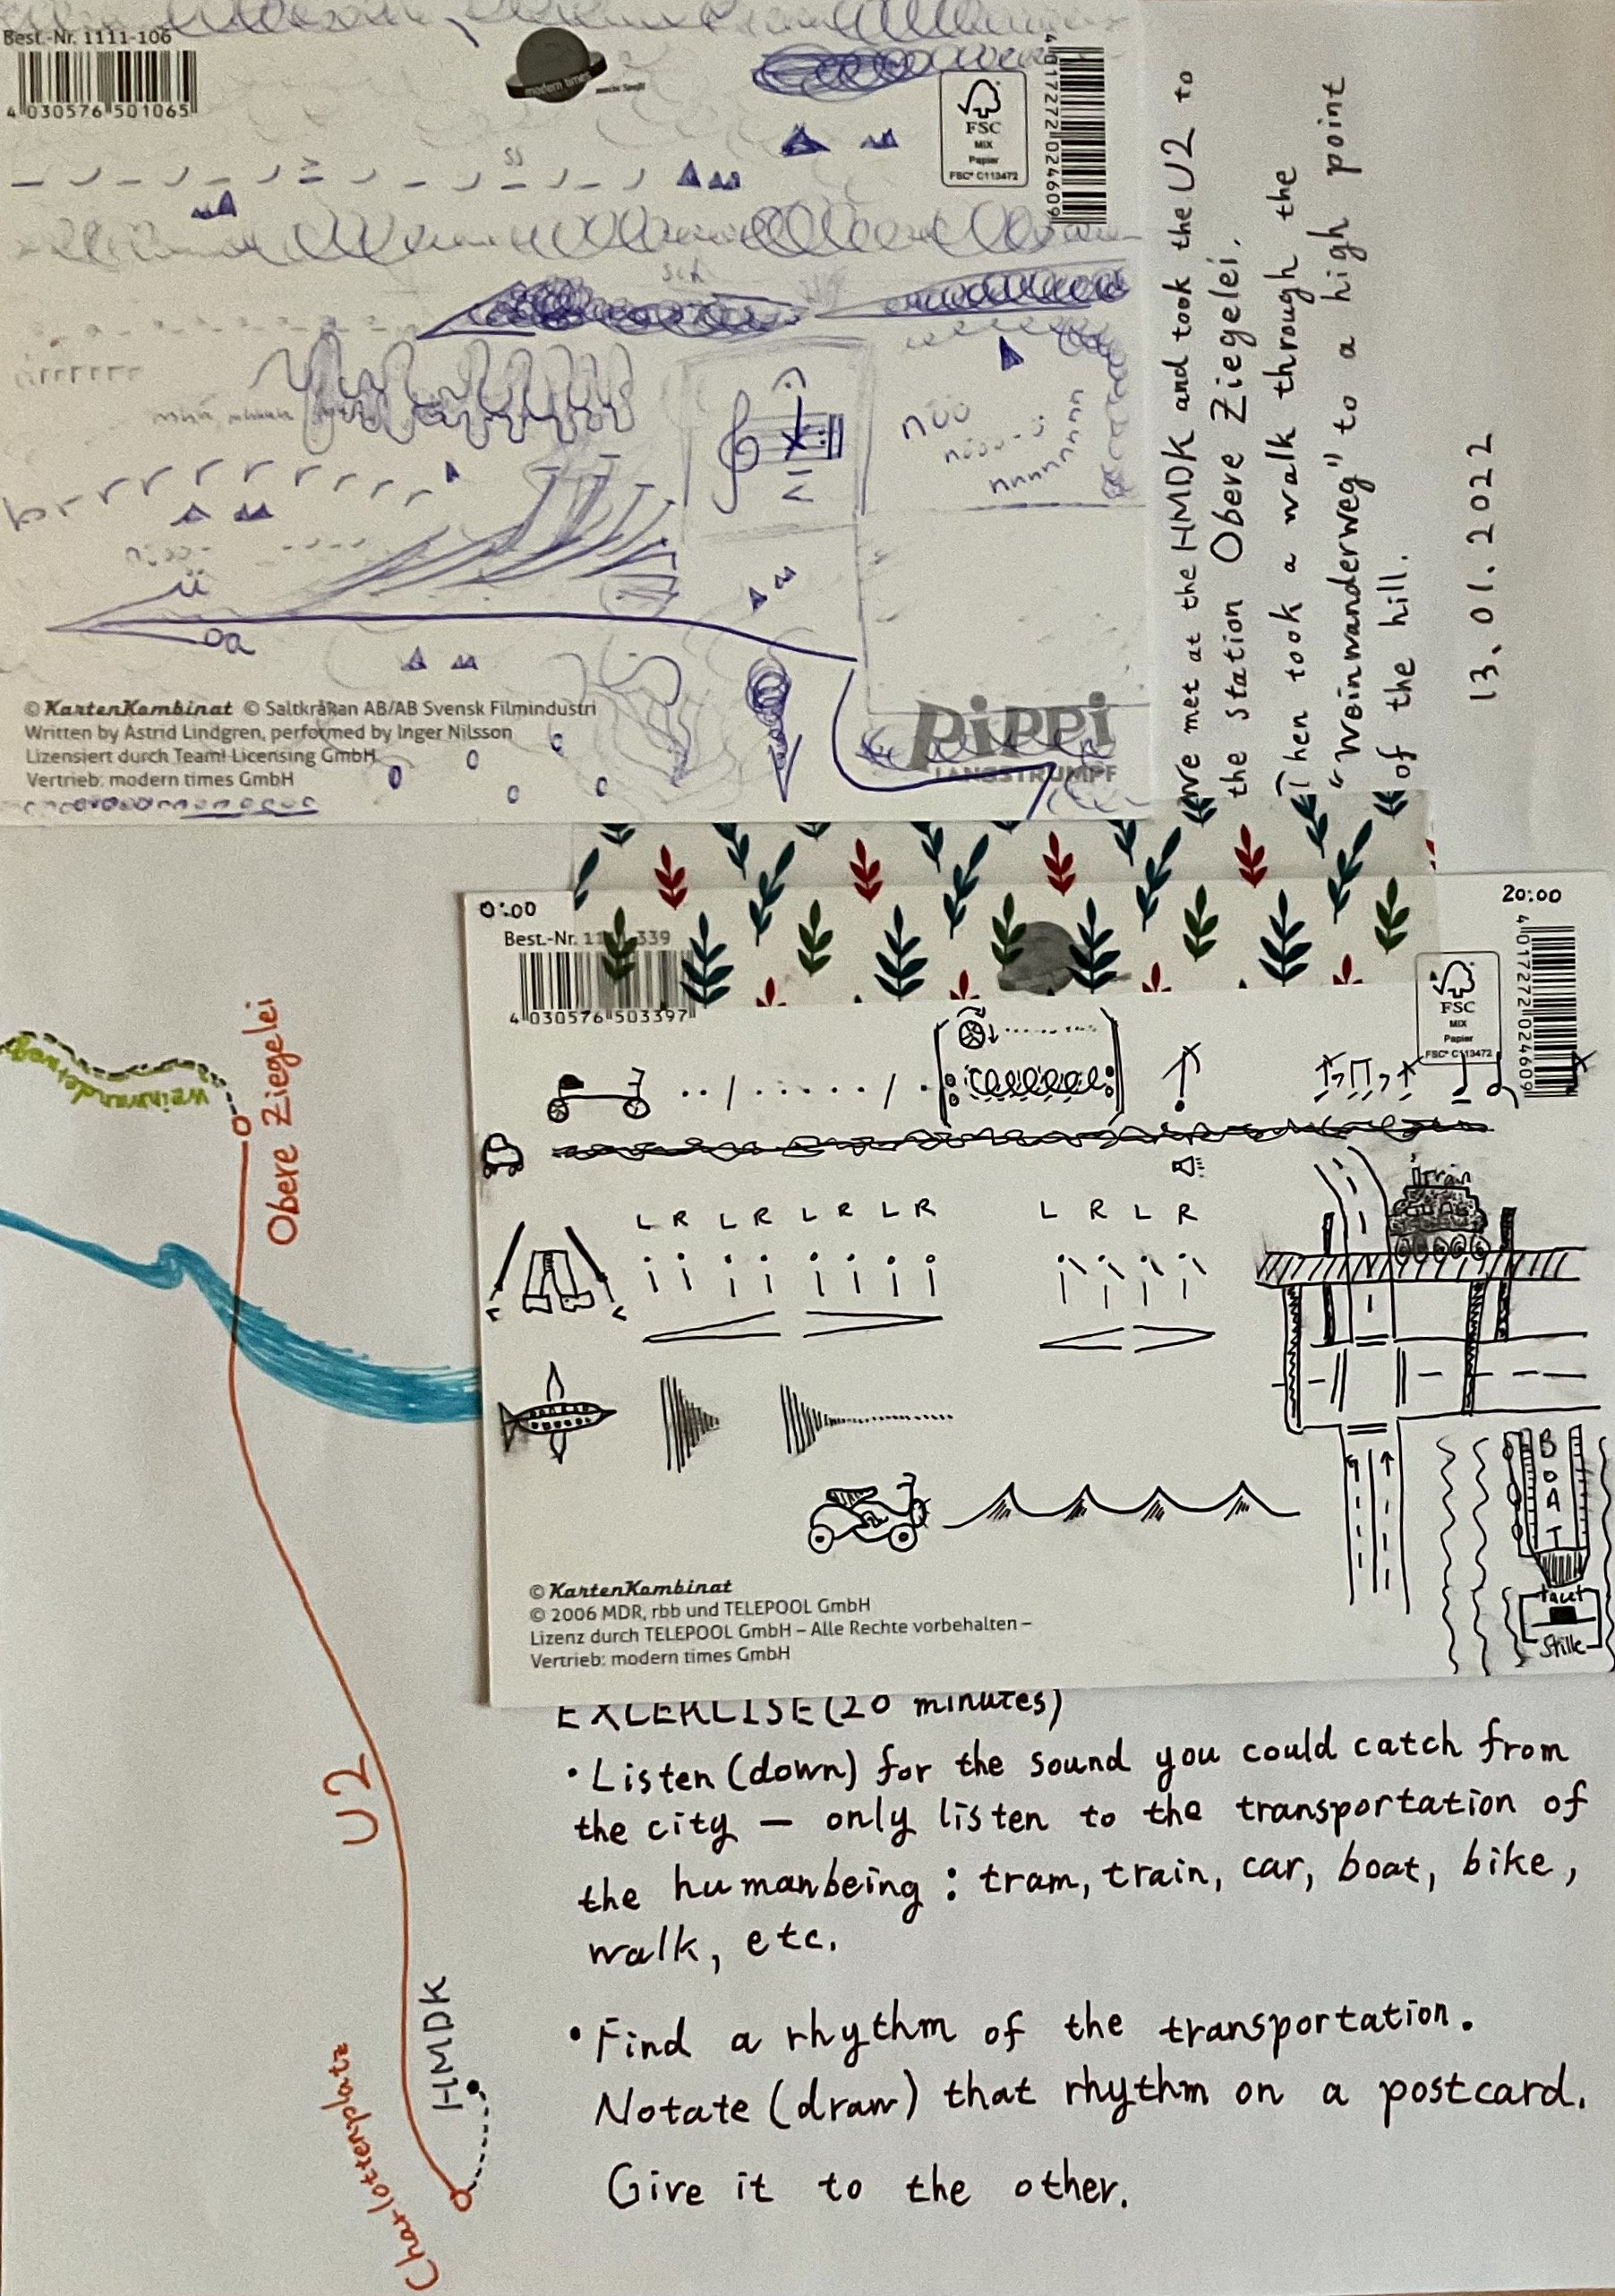 Best.-Nr. 1111-106
4 030576 501065
modern times
FSC
MIX
Papier
FSC® C113472
4 017272 024609
ss
sch
nüü
nnnnnnnn
brrrrrrrrr
ü
oa
© KartenKombinat © Saltkråkan AB/AB Svensk Filmindustri
Written by Astrid Lindgren, performed by Inger Nilsson
Lizensiert durch Team! Licensing GmbH
Vertrieb: modern times GmbH
Pippi
LANGSTRUMPF
we met at the HMDK and took the U2 to
the station Obere Ziegelei.
Then took a walk through the
"Weinwanderweg" to a high point
of the hill.
13.01.2022
0:00
20:00
Best.-Nr. 11 339
4 030576 503397
FSC
MIX
Papier
FSC® C113472
4 017272 024609
L R L R L R L R
L R L R
Train
BOAT
Tacet
Stille
© KartenKombinat
© 2006 MDR, rbb und TELEPOOL GmbH
Lizenz durch TELEPOOL GmbH – Alle Rechte vorbehalten –
Vertrieb: modern times GmbH
weinwanderweg
Obere Ziegelei
U2
HMDK
Charlottenplatz
EXCERCISE (20 minutes)
• Listen (down) for the sound you could catch from
the city — only listen to the transportation of
the humanbeing : tram, train, car, boat, bike,
walk, etc.
• Find a rhythm of the transportation.
Notate (draw) that rhythm on a postcard.
Give it to the other.